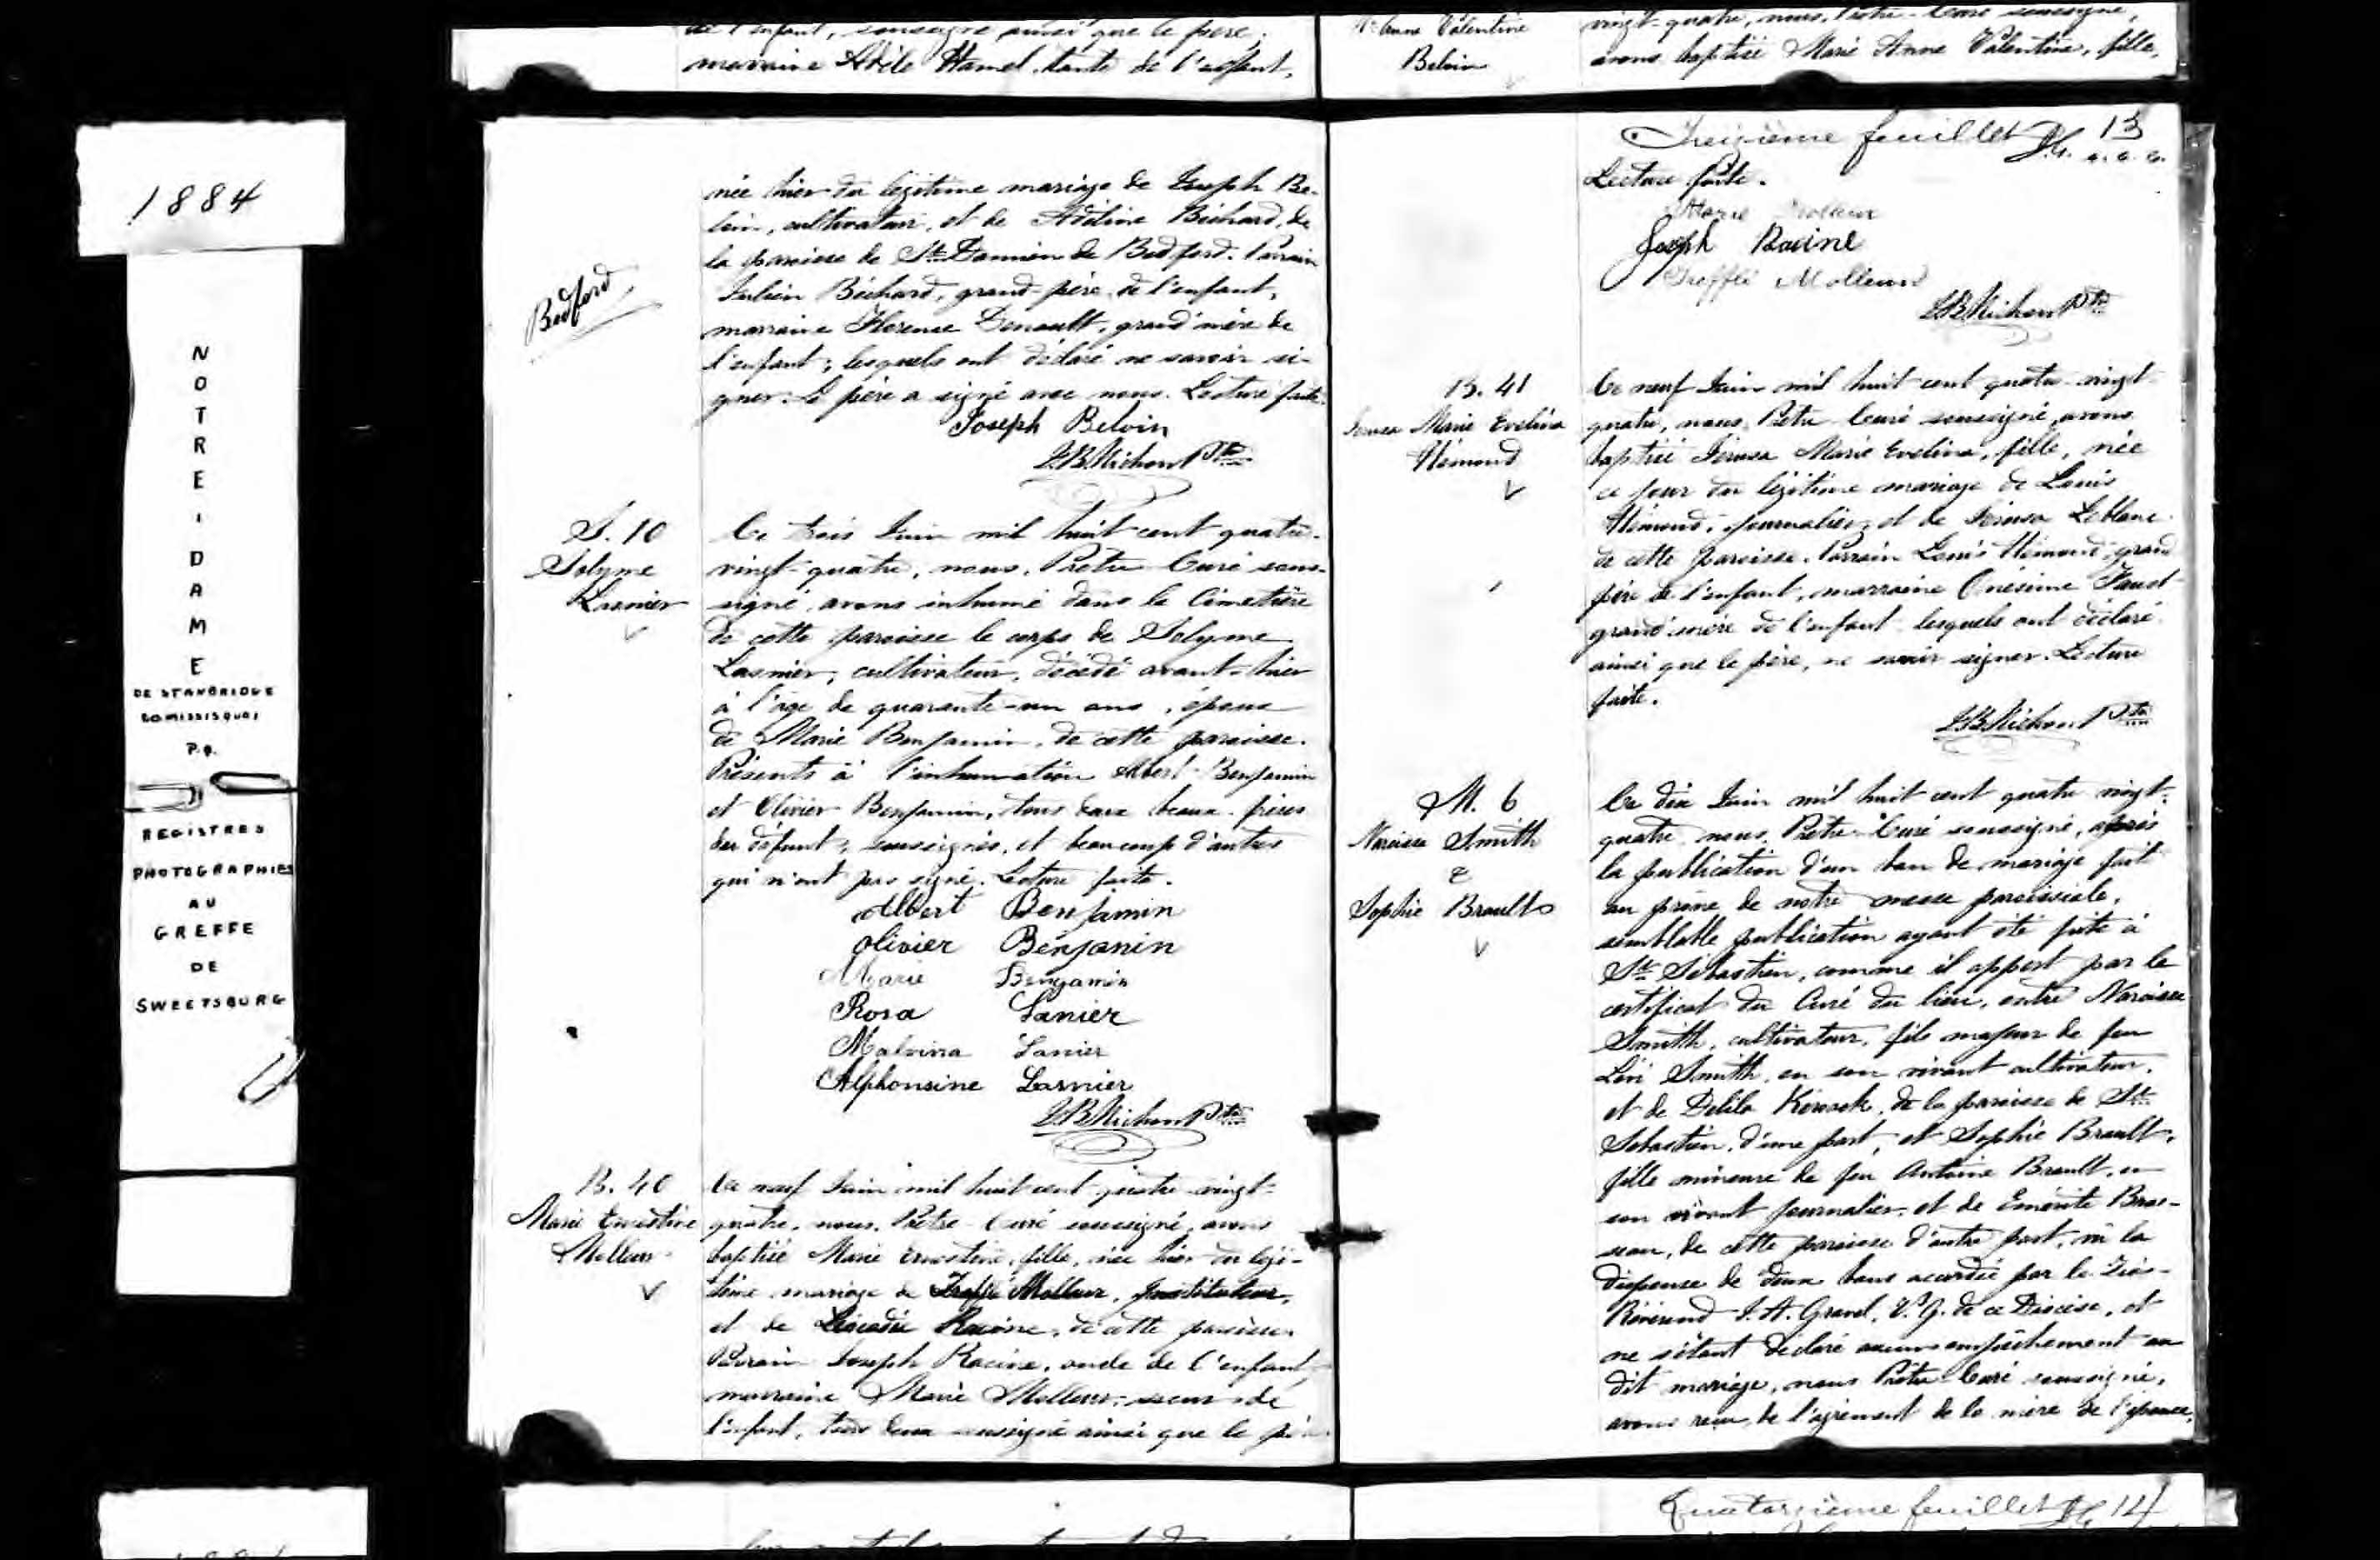 de l'enfant, soussigné ainsi que le père.
marraine Adèle Hamel, tante de l'enfant,
M. Anne Valentine
Belvin
vingt-quatre, nous, Prêtre-Curé soussigné,
avons baptisé Marie Anne Valentine, fille,
1884
NOTRE-DAME
DE STANBRIDGE
CO MISSISQUOI
P.Q.
REGISTRES
PHOTOGRAPHIES
AU
GREFFE
DE
SWEETSBURG
née hier du légitime mariage de Joseph Be-
loin, cultivateur, et de Adéline Béchard, de
la paroisse de St. Damien de Bedford. Parrain
Julien Béchard, grand-père de l'enfant,
Bedford
marraine Florence Denault, grand'mère de
l'enfant; lesquels ont déclaré ne savoir si-
gner. Le père a signé avec nous. Lecture faite.
Joseph Beloin
J.B. Michon Ptre
S. 10
Solyme
Lasnier
Ce trois Juin mil huit cent quatre-
vingt-quatre, nous, Prêtre Curé sous-
signé, avons inhumé dans le Cimetière
de cette paroisse le corps de Solyme
Lasnier, cultivateur, décédé avant-hier
à l'âge de quarante-un ans, époux
de Marie Benjamin, de cette paroisse.
Présents à l'inhumation Albert Benjamin
et Olivier Benjamin, tous deux beaux-frères
du défunt, soussignés, et beaucoup d'autres
qui n'ont pas signé. Lecture faite.
Albert Benjamin
Olivier Benjanin
Marie Benjamin
Rosa Lanier
Malvina Lanier
Alphonsine Lasnier
J.B. Michon Ptre
B. 40
Marie Ernestine
Molleur
Ce neuf Juin mil huit cent quatre-vingt-
quatre, nous, Prêtre-Curé soussigné, avons
baptisé Marie Ernestine, fille, née hier du légi-
time mariage de Trefflé Molleur, Instituteur,
et de Léocadie Racine, de cette paroisse.
Parrain Joseph Racine, oncle de l'enfant,
marraine Marie Molleur, soeur de
l'enfant, tous deux soussignés ainsi que le père.
Treizième feuillet 13
Lecture faite.
Marie Molleur
Joseph Racine
Trefflé Molleur
J.B. Michon Ptre
B. 41
Marie Evelina
Hémond
Ce neuf Juin mil huit cent quatre-vingt-
quatre, nous, Prêtre Curé soussigné, avons
baptisé Marie Evelina, fille, née
ce jour du légitime mariage de Louis
Hémond, journalier, et de Leblanc
de cette paroisse. Parrain Louis Hémond, grand
père de l'enfant, marraine Onésime
grand'mère de l'enfant lesquels ont déclaré
ainsi que le père, ne savoir signer. Lecture
faite.
J.B. Michon Ptre
M. 6
Narcisse Smith
&
Sophie Brault
Ce dix Juin mil huit cent quatre-vingt-
quatre, nous, Prêtre-Curé soussigné, après
la publication d'un ban de mariage fait
au prône de notre messe paroissiale,
semblable publication ayant été faite à
St. Sébastien, comme il appert par le
certificat du Curé du lieu, entre Narcisse
Smith, cultivateur, fils majeur de feu
Lévi Smith, en son vivant cultivateur,
et de Delila, de la paroisse de St.
Sébastien, d'une part, et Sophie Brault,
fille mineure de feu Antoine Brault, en
son vivant journalier, et de Emérite Bras-
seau, de cette paroisse d'autre part, vu la
dispense de deux bans accordée par le Très-
Révérend J. A. Gravel, V. G. de ce Diocèse, et
ne s'étant déclaré aucun empêchement au
dit mariage, nous Prêtre-Curé soussigné,
avons reçu, de l'agrément de la mère de l'épouse,
Quatorzième feuillet 14